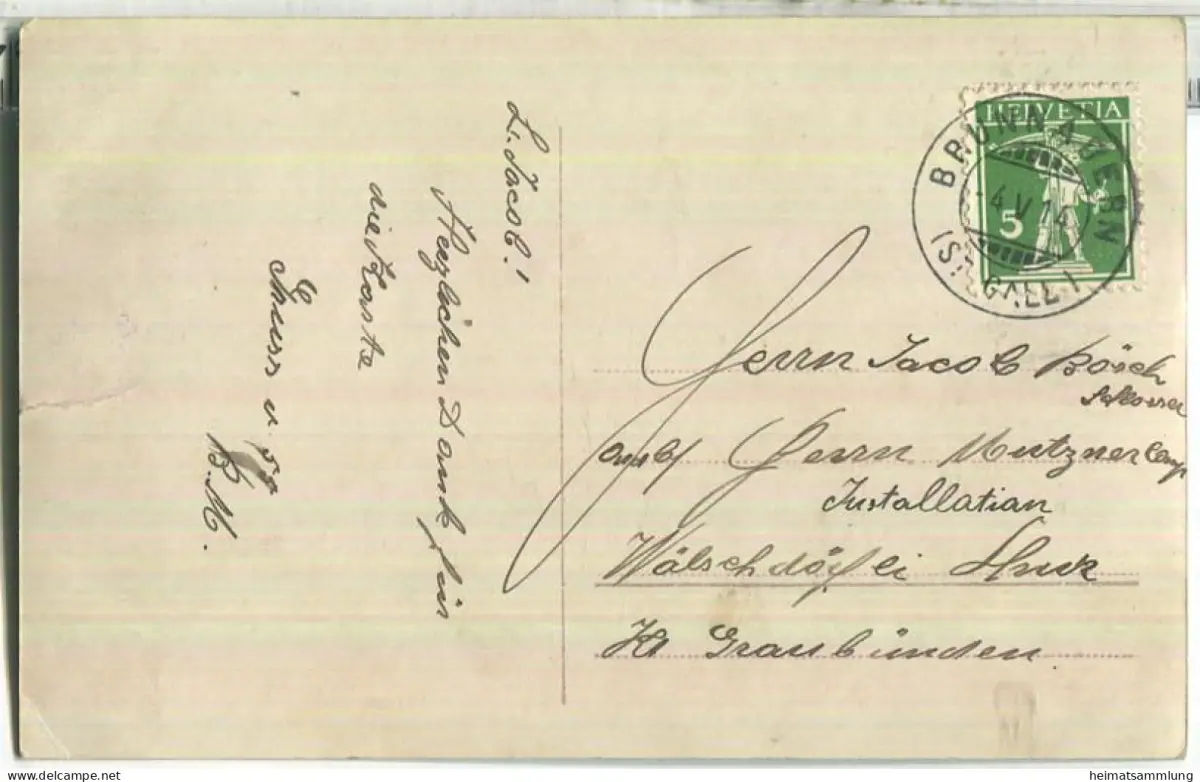 L. Jacob!
Herzlichen Dank für
die Karte
Gruss u.
B. M.
HELVETIA
5
BRUNNADERN
4 V 14
(ST. GALLEN)
Herrn Jacob Bösch
Schlosser
Herrn Mutzner Comp
Installation
Wälschdörfli Chur
Kt Graubünden
heimatsammlung.ch